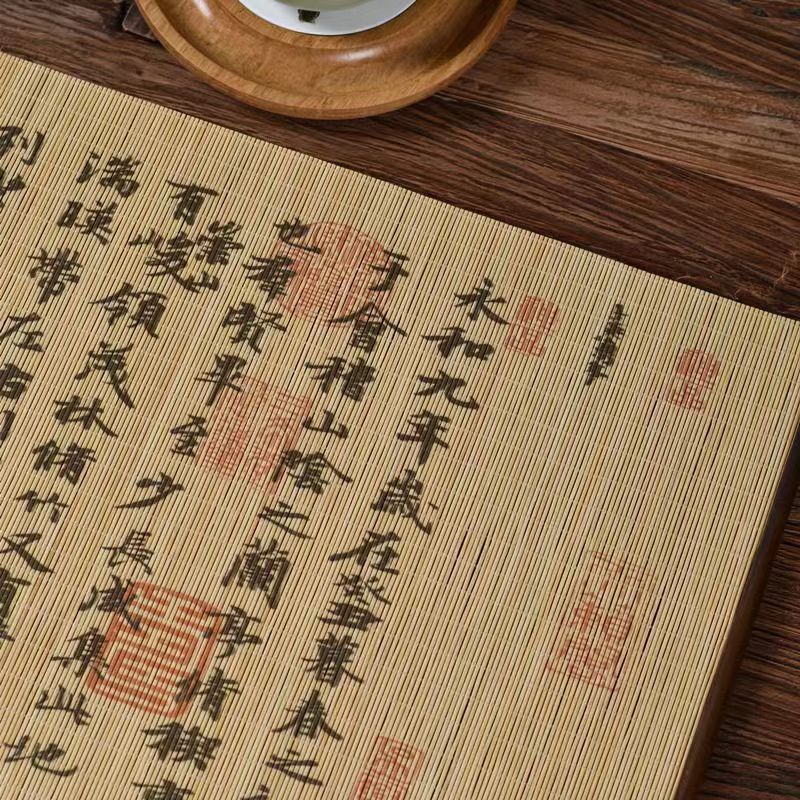 永和九年歲在癸丑暮春之
于會稽山陰之蘭亭脩稧事
也羣賢畢至少長咸集此地
有崇山峻領茂林脩竹又有
湍暎帶左右引
列坐